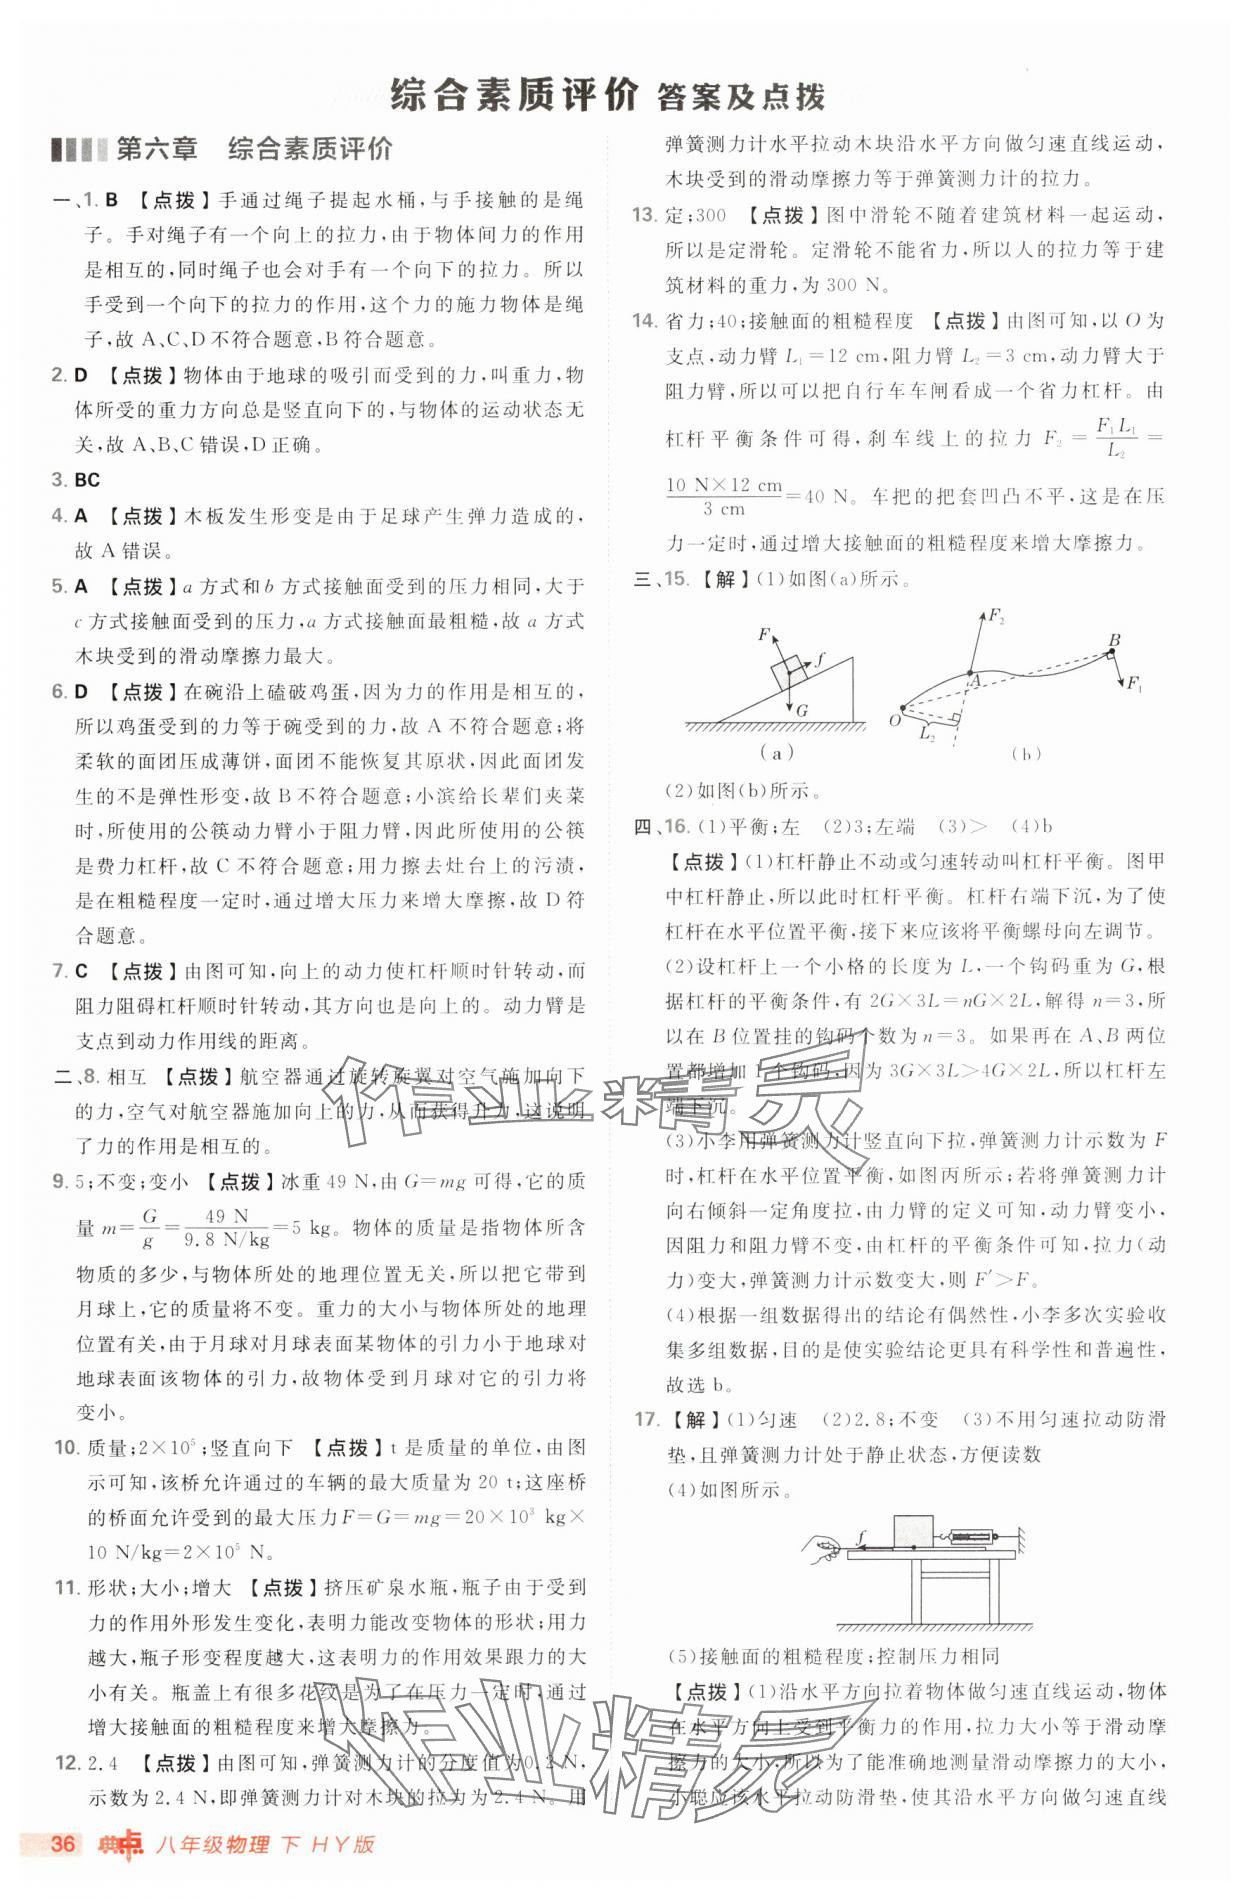 综合素质评价 答案及点拨
第六章 综合素质评价
一、1. B 【点拨】手通过绳子提起水桶,与手接触的是绳
子。手对绳子有一个向上的拉力,由于物体间力的作用
是相互的,同时绳子也会对手有一个向下的拉力。所以
手受到一个向下的拉力的作用,这个力的施力物体是绳
子,故 A、C、D 不符合题意,B 符合题意。
2. D 【点拨】物体由于地球的吸引而受到的力,叫重力,物
体所受的重力方向总是竖直向下的,与物体的运动状态无
关,故 A、B、C 错误,D 正确。
3. BC
4. A 【点拨】木板发生形变是由于足球产生弹力造成的,
故 A 错误。
5. A 【点拨】a 方式和 b 方式接触面受到的压力相同,大于
c 方式接触面受到的压力,a 方式接触面最粗糙,故 a 方式
木块受到的滑动摩擦力最大。
6. D 【点拨】在碗沿上磕破鸡蛋,因为力的作用是相互的,
所以鸡蛋受到的力等于碗受到的力,故 A 不符合题意;将
柔软的面团压成薄饼,面团不能恢复其原状,因此面团发
生的不是弹性形变,故 B 不符合题意;小滨给长辈们夹菜
时,所使用的公筷动力臂小于阻力臂,因此所使用的公筷
是费力杠杆,故 C 不符合题意;用力擦去灶台上的污渍,
是在粗糙程度一定时,通过增大压力来增大摩擦,故 D 符
合题意。
7. C 【点拨】由图可知,向上的动力使杠杆顺时针转动,而
阻力阻碍杠杆顺时针转动,其方向也是向上的。动力臂是
支点到动力作用线的距离。
二、8. 相互 【点拨】航空器通过旋转旋翼对空气施加向下
的力,空气对航空器施加向上的力,从而获得升力,这说明
了力的作用是相互的。
9. 5;不变;变小 【点拨】冰重 49 N,由 G=mg 可得,它的质
量 m=G/g=49 N/9.8 N/kg=5 kg。物体的质量是指物体所含
物质的多少,与物体所处的地理位置无关,所以把它带到
月球上,它的质量将不变。重力的大小与物体所处的地理
位置有关,由于月球对月球表面某物体的引力小于地球对
地球表面该物体的引力,故物体受到月球对它的引力将
变小。
10. 质量;2×10⁵;竖直向下 【点拨】t 是质量的单位,由图
示可知,该桥允许通过的车辆的最大质量为 20 t;这座桥
的桥面允许受到的最大压力F=G=mg=20×10³ kg×
10 N/kg=2×10⁵ N。
11. 形状;大小;增大 【点拨】挤压矿泉水瓶,瓶子由于受到
力的作用外形发生变化,表明力能改变物体的形状;用力
越大,瓶子形变越大,这表明力的作用效果跟力的大
小有关。瓶盖上有很多花纹是为了在压力一定时,通过
增大接触面的粗糙程度来增大摩擦力。
12. 2.4 【点拨】由图可知,弹簧测力计的分度值为0.2 N,
示数为 2.4 N,即弹簧测力计对木块的拉力为 2.4 N。用
弹簧测力计水平拉动木块沿水平方向做匀速直线运动,
木块受到的滑动摩擦力等于弹簧测力计的拉力。
13. 定;300 【点拨】图中滑轮不随着建筑材料一起运动,
所以是定滑轮。定滑轮不能省力,所以人的拉力等于建
筑材料的重力,为 300 N。
14. 省力;40;接触面的粗糙程度 【点拨】由图可知,以 O 为
支点,动力臂 L₁=12 cm,阻力臂 L₂=3 cm,动力臂大于
阻力臂,所以可以把自行车车闸看成一个省力杠杆。由
杠杆平衡条件可得,刹车线上的拉力 F₂=F₁L₁/L₂=
10 N×12 cm/3 cm=40 N。车把的把套凹凸不平,这是在压
力一定时,通过增大接触面的粗糙程度来增大摩擦力。
三、15.【解】(1)如图(a)所示。
F f G (a)
F₂ B A F₁ O L₂ (b)
(2)如图(b)所示。
四、16. (1)平衡;左 (2)3;左端 (3)> (4)b
【点拨】(1)杠杆静止不动或匀速转动叫杠杆平衡。图甲
中杠杆静止,所以此时杠杆平衡。杠杆右端下沉,为了使
杠杆在水平位置平衡,接下来应该将平衡螺母向左调节。
(2)设杠杆上一个小格的长度为 L,一个钩码重为 G,根
据杠杆的平衡条件,有 2G×3L=nG×2L,解得 n=3,所
以在 B 位置挂的钩码个数为 n=3。如果再在 A、B 两位
置都增加 1 个钩码,因为 3G×3L>4G×2L,所以杠杆左
端下沉。
(3)小李用弹簧测力计竖直向下拉,弹簧测力计示数为 F
时,杠杆在水平位置平衡,如图丙所示;若将弹簧测力计
向右倾斜一定角度拉,由力臂的定义可知,动力臂变小,
因阻力和阻力臂不变,由杠杆的平衡条件可知,拉力(动
力)变大,弹簧测力计示数变大,则 F′>F。
(4)根据一组数据得出的结论有偶然性,小李多次实验收
集多组数据,目的是使实验结论更具有科学性和普遍性,
故选 b。
17. 【解】(1)匀速 (2)2.8;不变 (3)不用匀速拉动防滑
垫,且弹簧测力计处于静止状态,方便读数
(4)如图所示。
f
(5)接触面的粗糙程度;控制压力相同
【点拨】(1)沿水平方向拉着物体做匀速直线运动,物体
在水平方向上受到平衡力的作用,拉力大小等于滑动摩
擦力的大小,所以为了能准确地测量滑动摩擦力的大小,
小聪应该水平拉动防滑垫,使其沿水平方向做匀速直线
作业精灵
作业精灵
36 典点 八年级物理 下 HY版